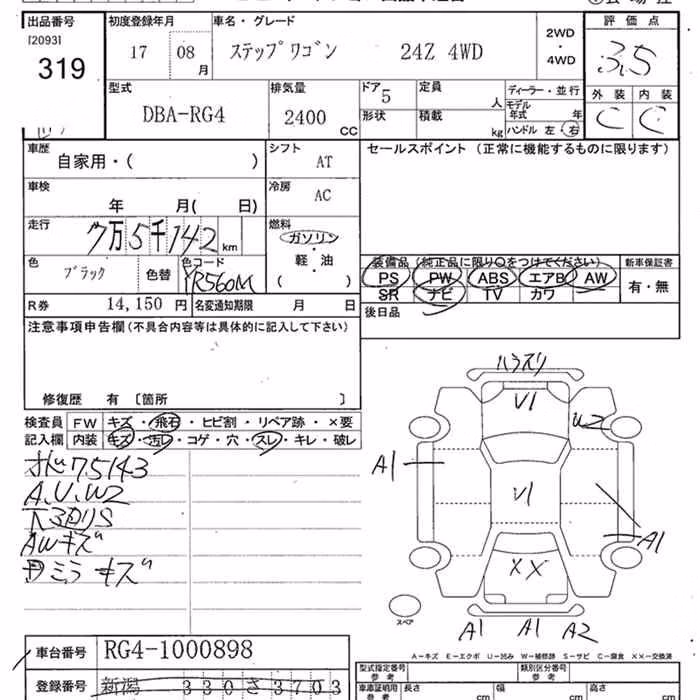 出品番号 初度登録年月 車名・グレード 2WD・4WD 評価点
[2093]
319 17 08月 ステップワゴン 24Z 4WD 3.5
型式 排気量 ドア 定員 ディーラー・並行 外装 内装
DBA-RG4 2400cc 5 人 モデル年式 年 C C
形状 積載 kg ハンドル 左・右
車歴 シフト セールスポイント (正常に機能するものに限ります)
自家用・( ) AT
車検 冷房
年 月( 日) AC
走行 燃料
7万5千142km ガソリン・軽・油
( )
色 色替 色コード 装備品 (純正品に限り○をつけてください) 新車保証書
ブラック YR560M PS PW ABS エアB AW 有・無
SR ナビ TV カワ
R券 14,150円 名変通知期限 月 日 後日品
注意事項申告欄(不具合内容等は具体的に記入して下さい)
修復歴 有 [箇所 ]
検査員 FW キズ・飛石・ヒビ割・リペア跡・×要
記入欄 内装 キズ・汚レ・コゲ・穴・スレ・キレ・破レ
75143
A.U.W2
AWキズ
ミラーキズ
V1
U2
A1
V1
A1
XX
スペア
A1 A1 A2
A-キズ E-エクボ U-凹み W-補修跡 S-サビ C-腐食 XX-交換済
車台番号 RG4-1000898
型式指定番号 参考 類別区分番号 参考
登録番号 新潟 330さ3703
車庫証明用 参考 長さ cm 幅 cm 高さ cm